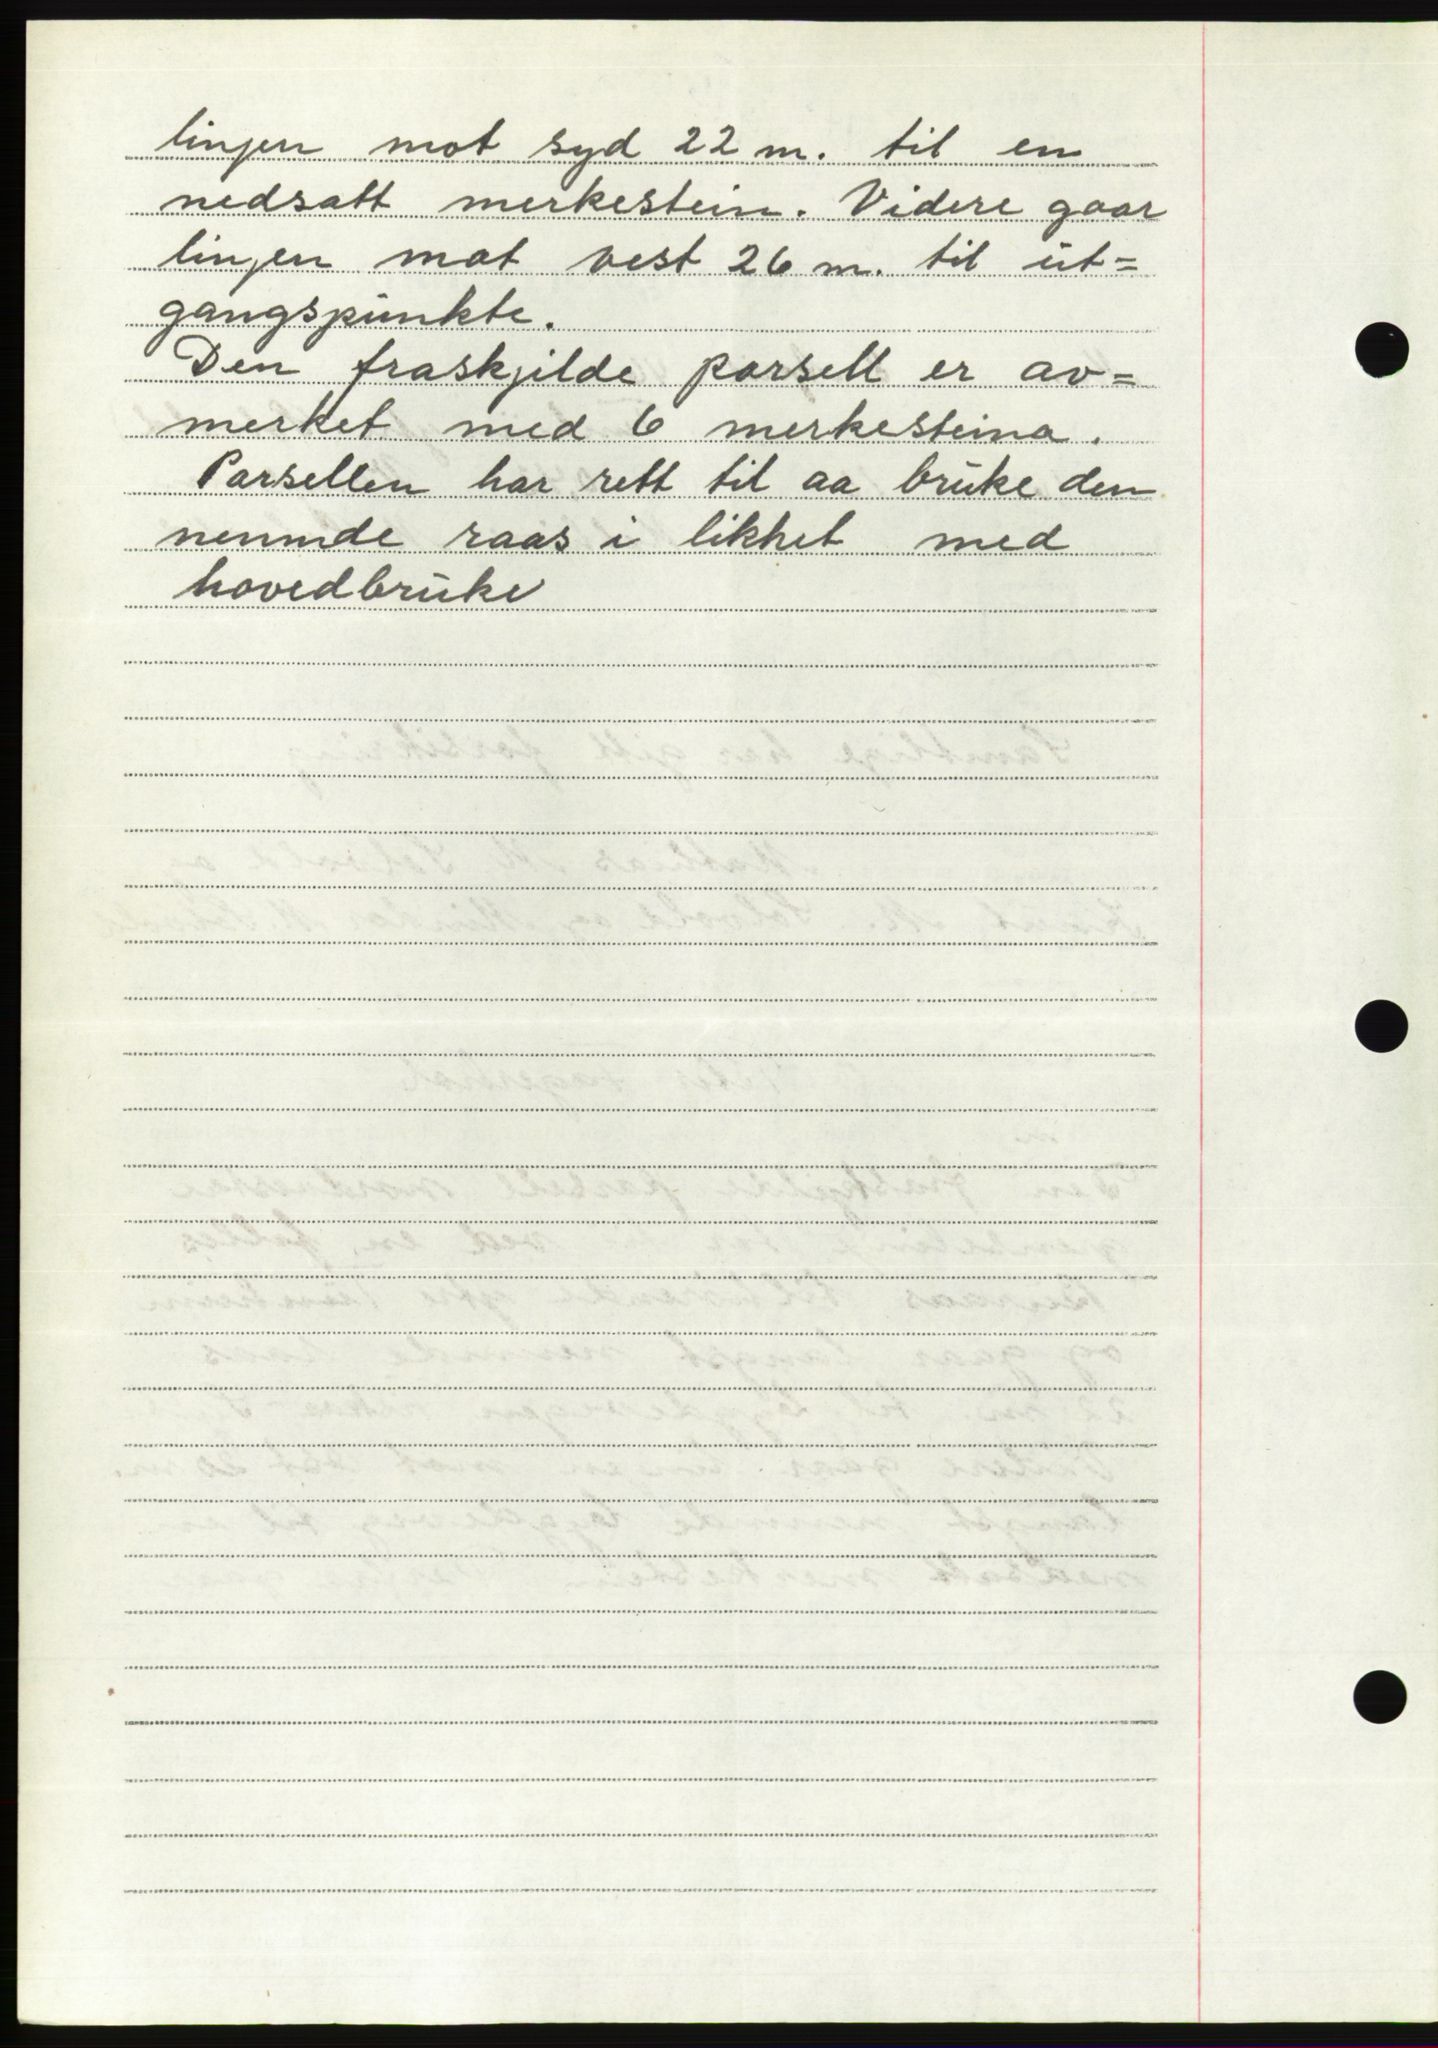 linjen mot syd 22 m. til en
nedsatt merkestein. Videre gaar
linjen mot vest 26 m. til ut=
gangspunkte.
Den fraskjilde parsell er av=
merket med 6 merkesteina.
Parsellen har rett til aa bruke den
nemnde raas i likhet med
hovedbruke